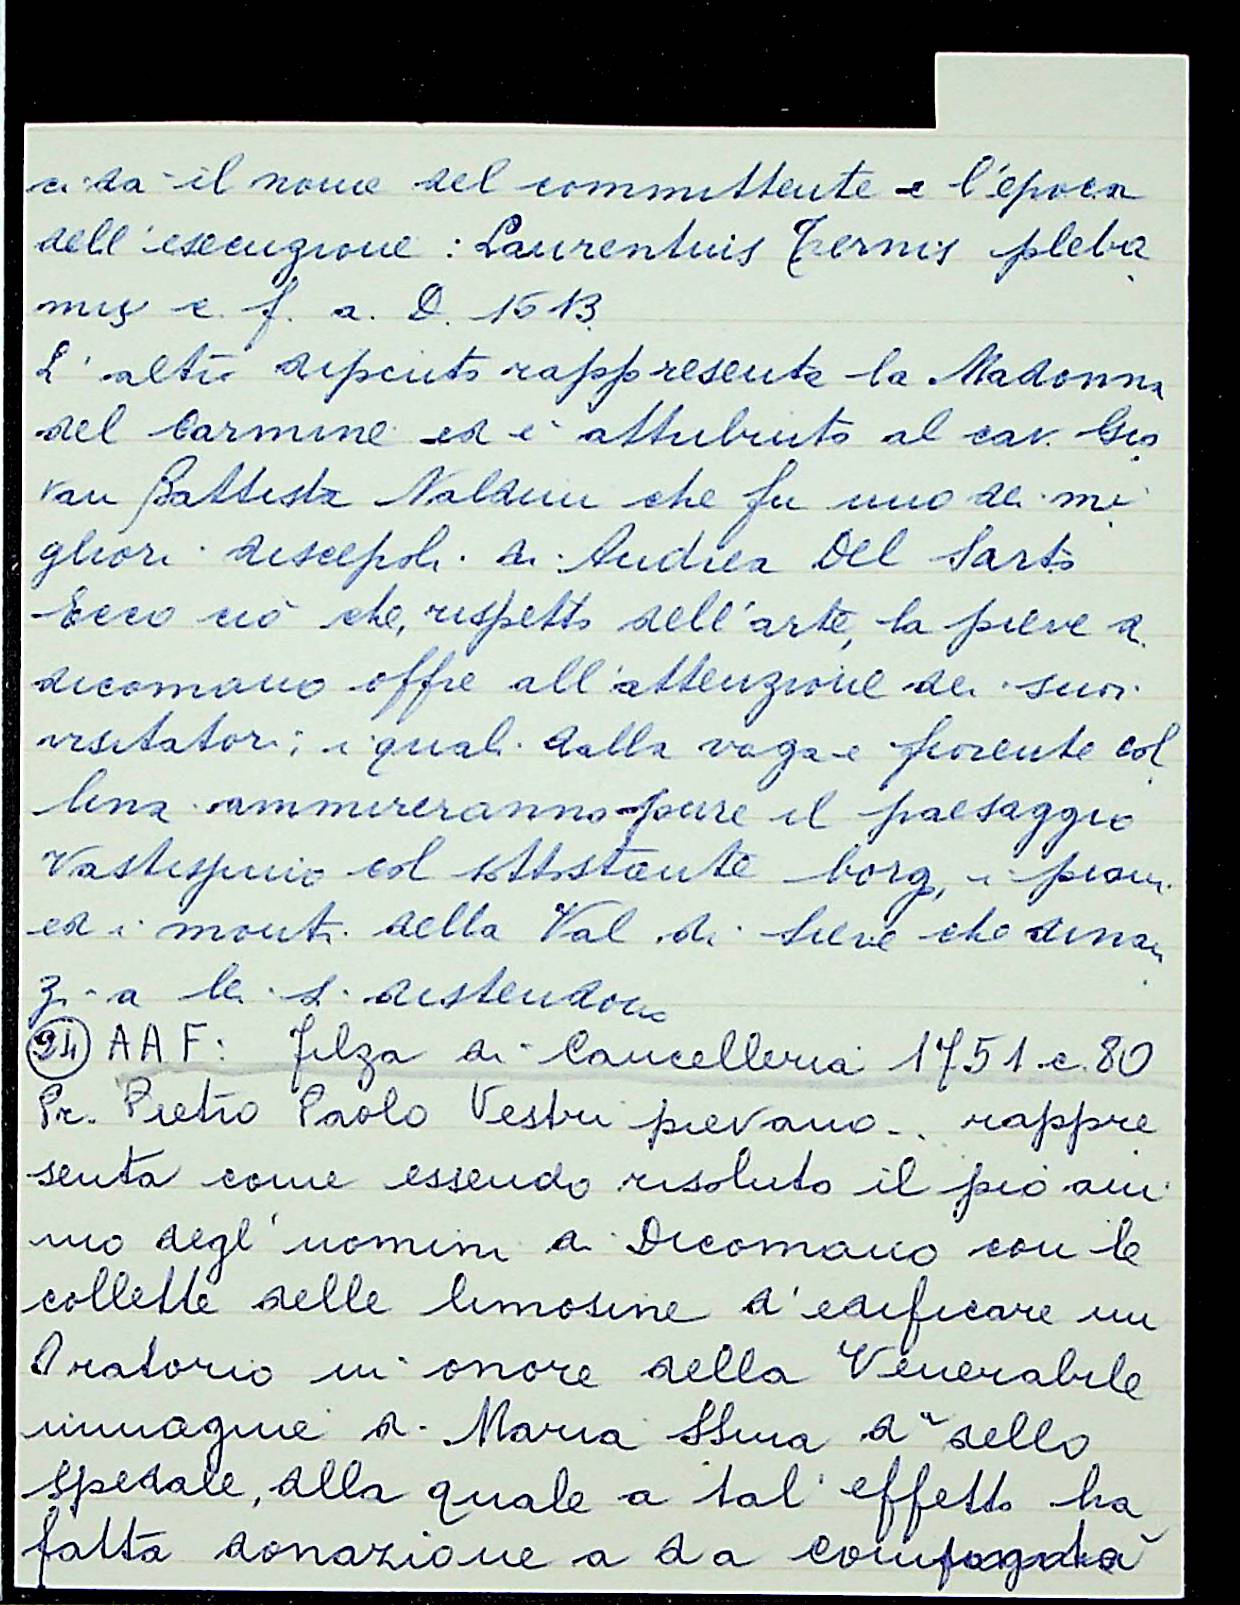 ci dà il nome del committente e l'epoca
dell'esecuzione: Laurentius Ternis pleba
nus c. f. a. D. 1613.
L'altro dipinto rappresenta la Madonna
del Carmine ed è attribuito al cav. Gio
van Battista Naldini che fu uno dei mi
gliori discepoli di Andrea Del Sarto
Ecco ciò che, rispetto dell'arte, la pieve di
dicomano offre all'attenzione dei suoi
visitatori; i quali dalla vaga e fiorente col
lina ammireranno pure il paesaggio
Vastissimo col sottostante borgo, i piani
ed i monti della Val di Sieve che dinan
zi a lei si distendono
94 AAF: Filza di Cancelleria 1751 c. 80
Pr. Pietro Paolo Vestri pievano.. rappre
senta come essendo risoluto il pio ani
mo degl'uomini di Dicomano con le
collette delle limosine d'edificare un
Oratorio in onore della Venerabile
immagine di Maria SSma da dello
spedale, alla quale a tal effetto ha
fatta donazione a da